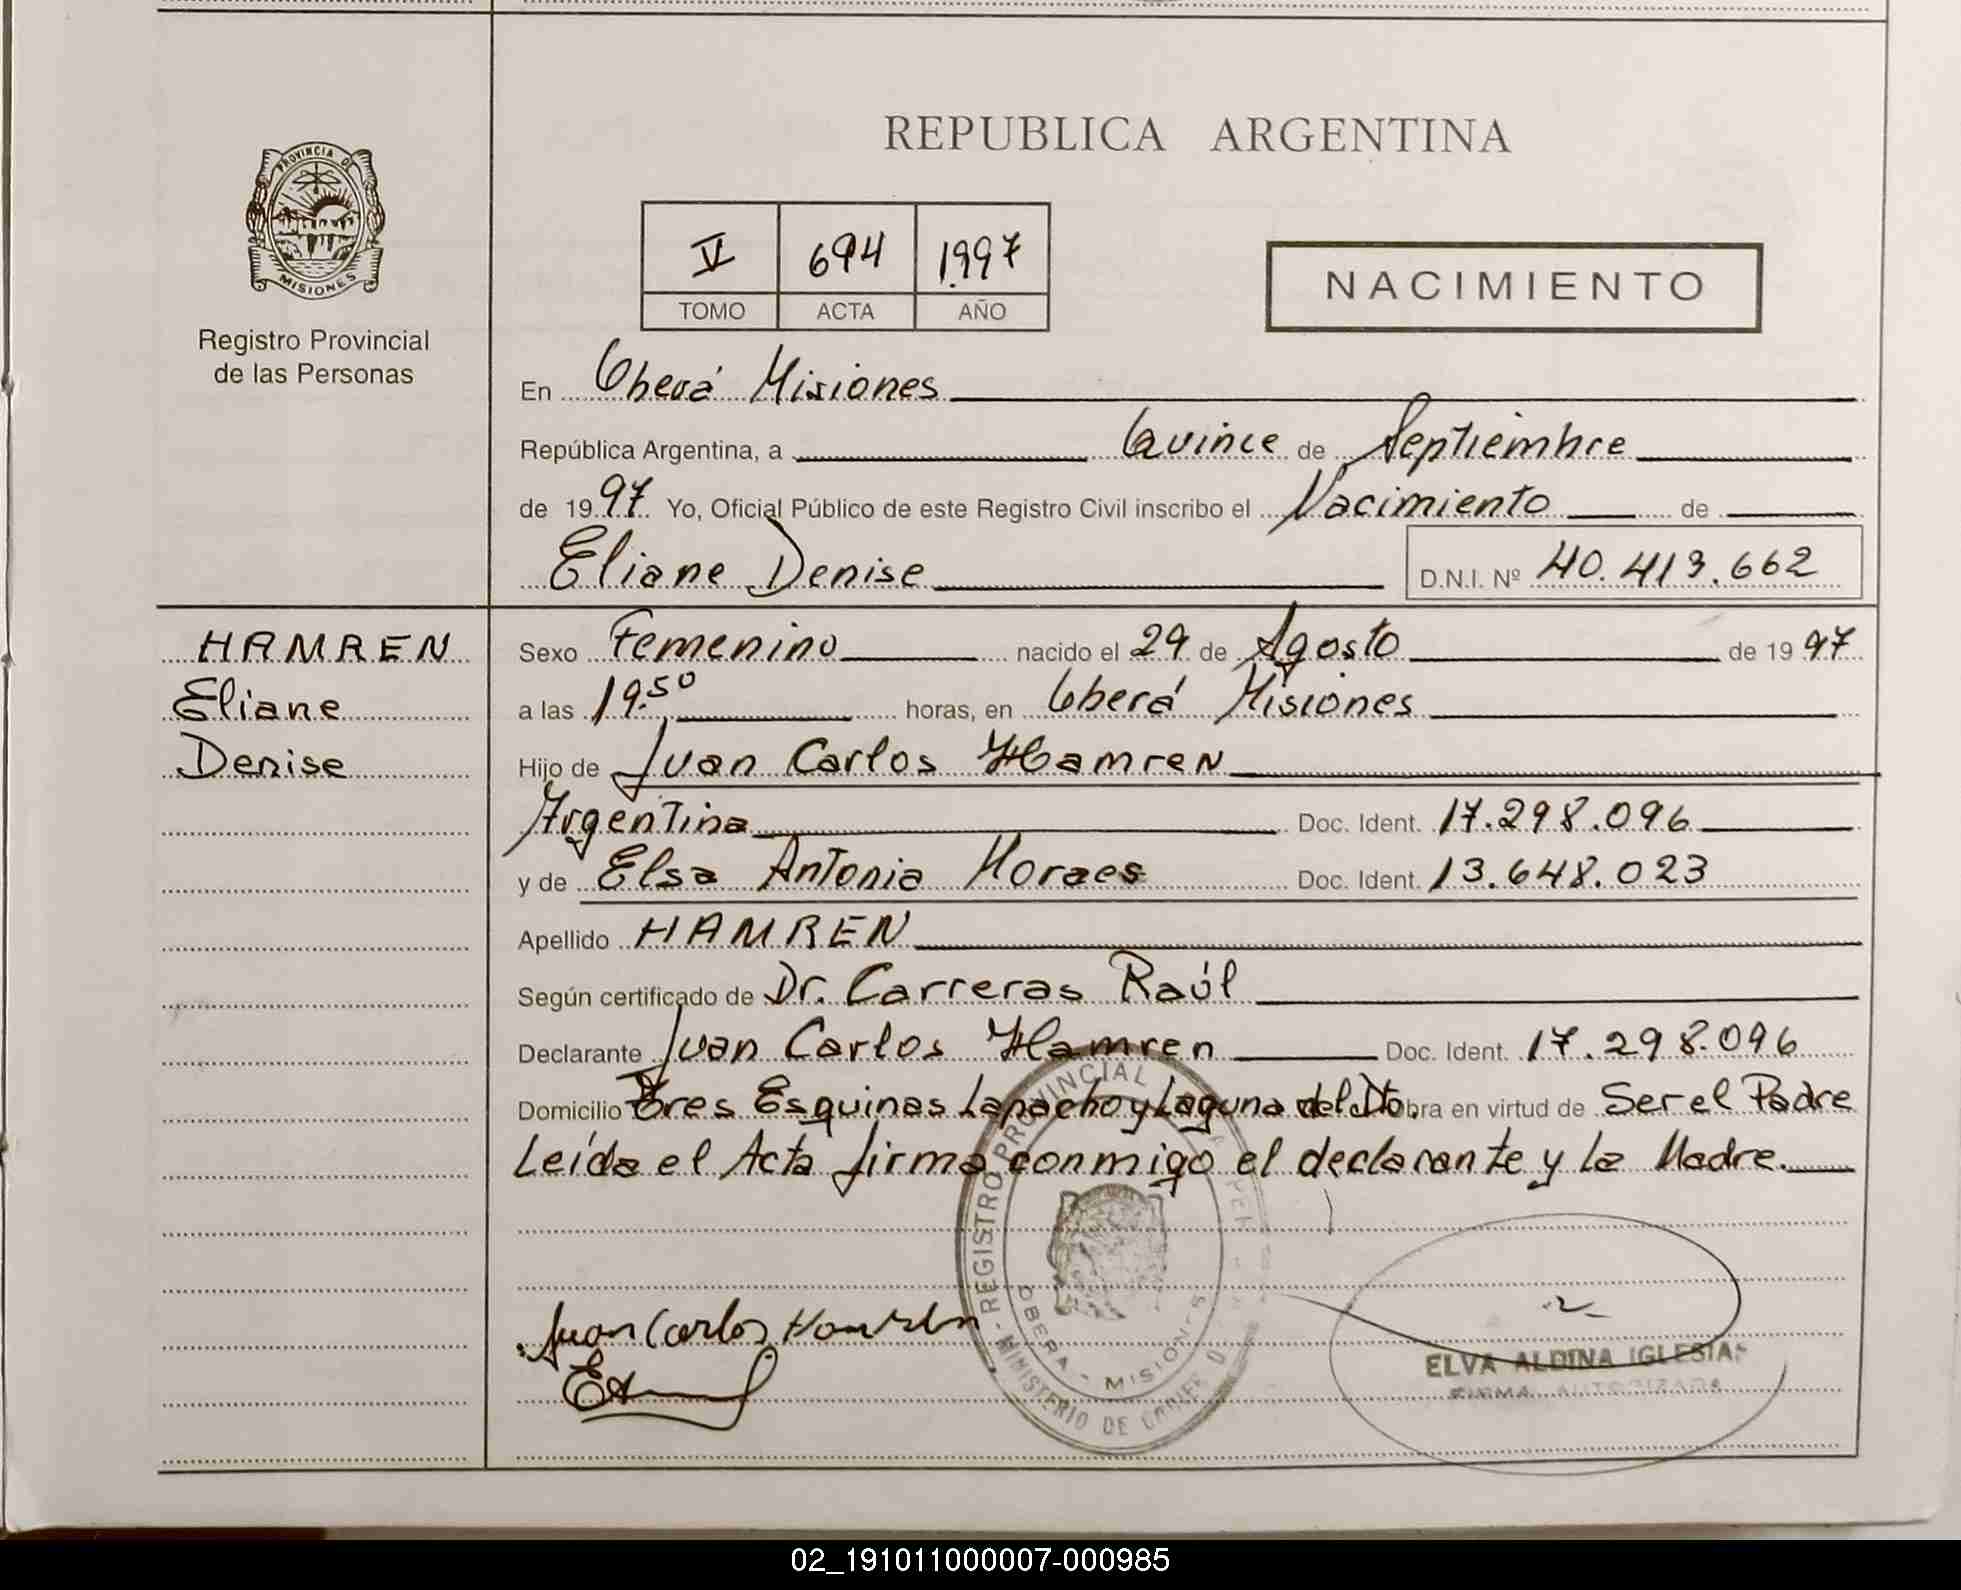 REPUBLICA ARGENTINA
PROVINCIA DE
MISIONES
Registro Provincial
de las Personas
V 694 1.997
TOMO ACTA AÑO
NACIMIENTO
En Oberá Misiones
República Argentina, a Quince de Septiembre
de 1997. Yo, Oficial Público de este Registro Civil inscribo el Nacimiento de
Eliane Denise D.N.I. Nº 40.413.662
HAMREN
Eliane
Denise
Sexo Femenino nacido el 29 de Agosto de 1997
a las 19.50 horas, en Oberá Misiones
Hijo de Juan Carlos Hamren
Argentina Doc. Ident. 17.298.096
y de Elsa Antonia Moraes Doc. Ident. 13.648.023
Apellido HAMREN
Según certificado de Dr. Carreras Raúl
Declarante Juan Carlos Hamren Doc. Ident. 17.298.096
Domicilio Tres Esquinas Lapacho y Laguna del Dto. bra en virtud de Ser el Padre
Leída el Acta firma conmigo el declarante y la Madre.
REGISTRO PROVINCIAL
OBERA - MISIONES
MINISTERIO DE
Juan Carlos Hamren
ELVA ALDINA IGLESIAS
FIRMA AUTORIZADA
02_191011000007-000985